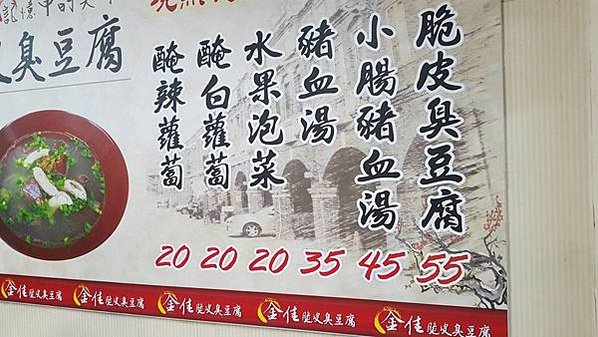 記憶中的
臭豆腐
脆皮臭豆腐 55
小腸豬血湯 45
豬血湯 35
水果泡菜 20
醃白蘿蔔 20
醃辣蘿蔔 20
金佳脆皮臭豆腐 金佳脆皮臭豆腐 金佳脆皮臭豆腐 金佳脆皮臭豆腐 金佳脆皮臭豆腐